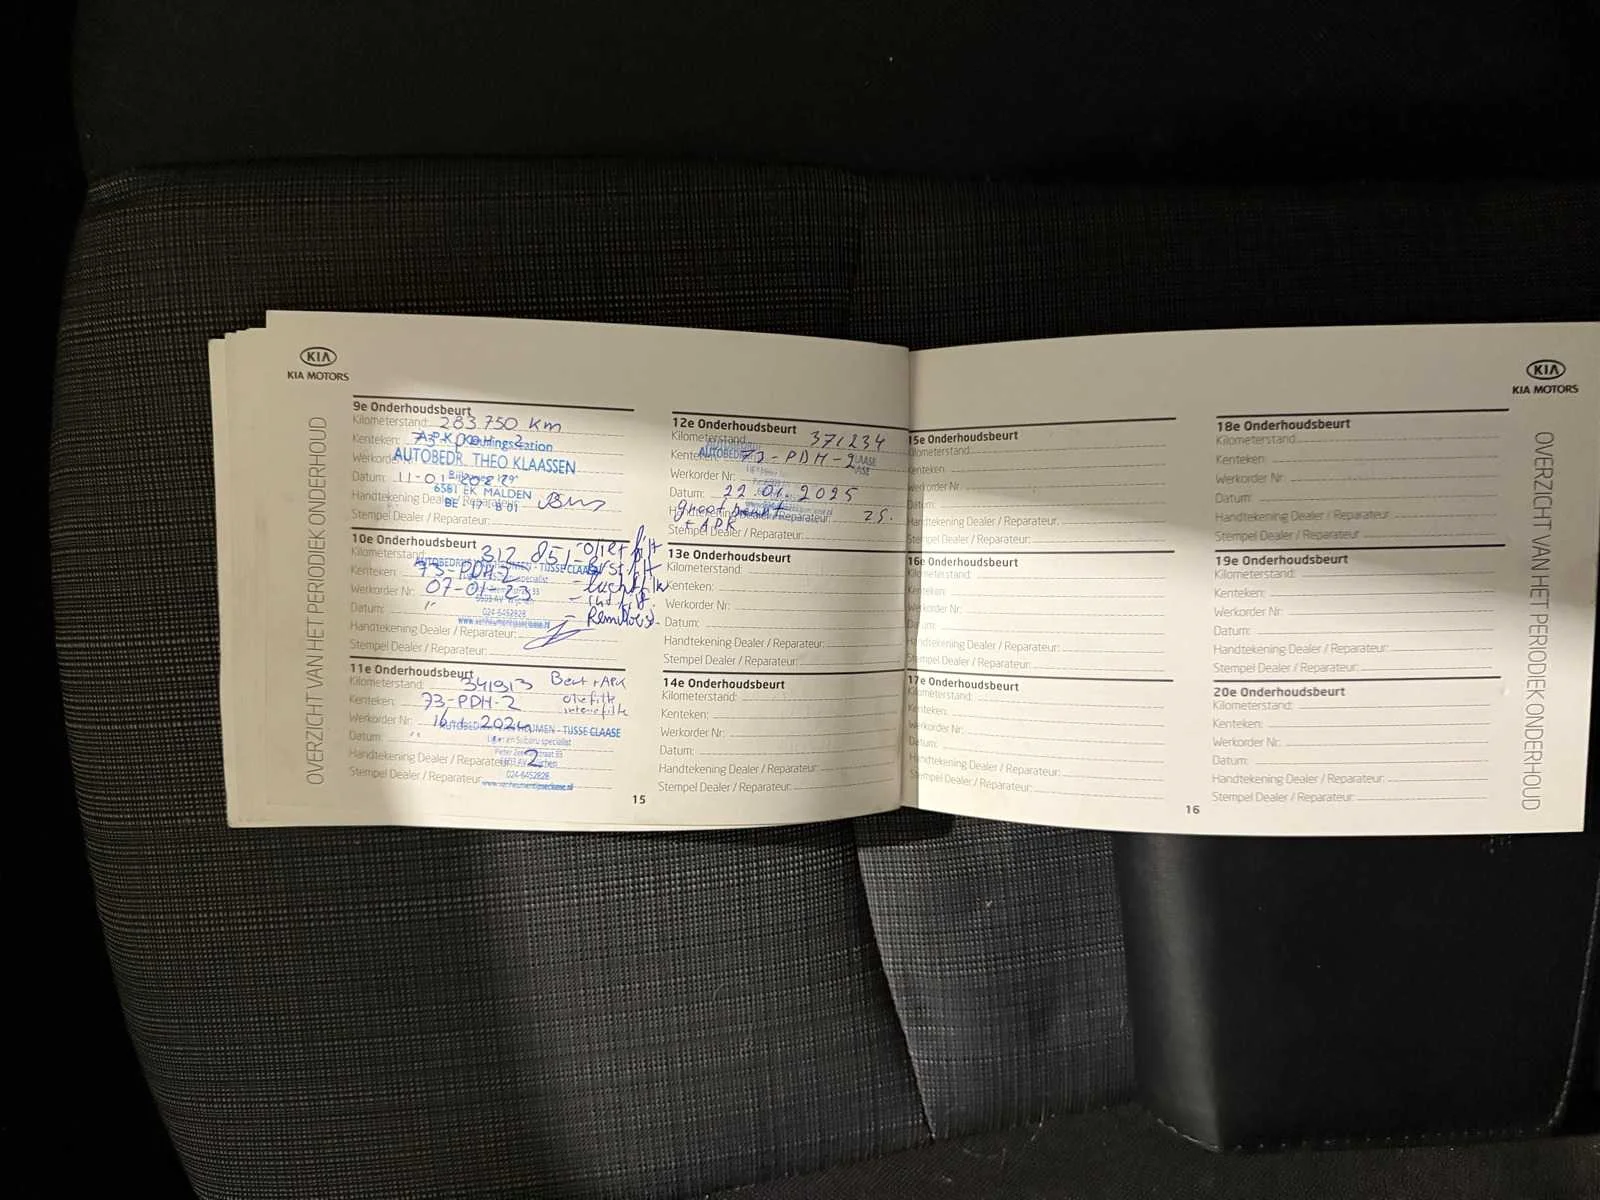 KIA
KIA MOTORS
OVERZICHT VAN HET PERIODIEK ONDERHOUD
9e Onderhoudsbeurt
Kilometerstand: 283.750 km
Kenteken: 73-PDH-2
A.P.K. Keuringsstation
Werkorder
AUTOBEDR. THEO KLAASSEN
Datum: 11-01-2022
6581 EK MALDEN
Handtekening Dealer / Reparateur:
Stempel Dealer / Reparateur:
10e Onderhoudsbeurt
Kilometerstand: 312.851
- TIJSSE CLAASE
Kenteken: 73-PDH-2
Werkorder Nr: 07-01-23
Datum: "
024-6452828
www.vanheumentijsseclaase.nl
Handtekening Dealer / Reparateur:
Stempel Dealer / Reparateur:
11e Onderhoudsbeurt
Kilometerstand: 341913 Beurt + APK
Kenteken: 73-PDH-2 oliefilte
interieurfilte
Werkorder Nr: 2024
- TIJSSE CLAASE
Datum: "
en Subaru specialist
Handtekening Dealer / Reparateur:
024-6452828
Stempel Dealer / Reparateur:
www.vanheumentijsseclaase.nl
15
12e Onderhoudsbeurt
Kilometerstand: 371234
Kenteken: 73-PDH-2
Werkorder Nr:
Datum: 22.01.2025
Handtekening Dealer / Reparateur:
groot beurt
+ APK
Stempel Dealer / Reparateur:
13e Onderhoudsbeurt
Kilometerstand:
Kenteken:
Werkorder Nr:
Datum:
Handtekening Dealer / Reparateur:
Stempel Dealer / Reparateur:
14e Onderhoudsbeurt
Kilometerstand:
Kenteken:
Werkorder Nr:
Datum:
Handtekening Dealer / Reparateur:
Stempel Dealer / Reparateur:
15e Onderhoudsbeurt
Kilometerstand:
Kenteken:
Werkorder Nr:
Datum:
Handtekening Dealer / Reparateur:
Stempel Dealer / Reparateur:
16e Onderhoudsbeurt
Kilometerstand:
Kenteken:
Werkorder Nr:
Datum:
Handtekening Dealer / Reparateur:
Stempel Dealer / Reparateur:
17e Onderhoudsbeurt
Kilometerstand:
Kenteken:
Werkorder Nr:
Datum:
Handtekening Dealer / Reparateur:
Stempel Dealer / Reparateur:
16
18e Onderhoudsbeurt
Kilometerstand:
Kenteken:
Werkorder Nr:
Datum:
Handtekening Dealer / Reparateur:
Stempel Dealer / Reparateur:
19e Onderhoudsbeurt
Kilometerstand:
Kenteken:
Werkorder Nr:
Datum:
Handtekening Dealer / Reparateur:
Stempel Dealer / Reparateur:
20e Onderhoudsbeurt
Kilometerstand:
Kenteken:
Werkorder Nr:
Datum:
Handtekening Dealer / Reparateur:
Stempel Dealer / Reparateur:
KIA
KIA MOTORS
OVERZICHT VAN HET PERIODIEK ONDERHOUD